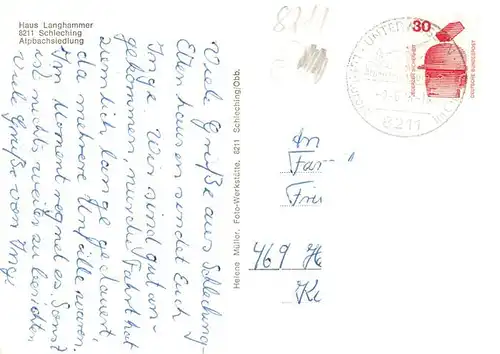 Haus Langhammer
8211 Schleching
Alpbachsiedlung
Viele Grüße aus Schleching-
Ettenhausen sendet Euch
Inge. Wir sind gut an-
gekommen, nur die Fahrt hat
ziemlich lange gedauert,
da mehrere Unfälle waren.
Im Moment regnet es. Sonst
ist nichts weiter zu berichten.
Viele Grüße von Inge
Helene Müller, Foto-Werkstätte, 8211 Schleching/Obb.
8211
30
DEUTSCHE BUNDESPOST
8211
An
Fam
469 He